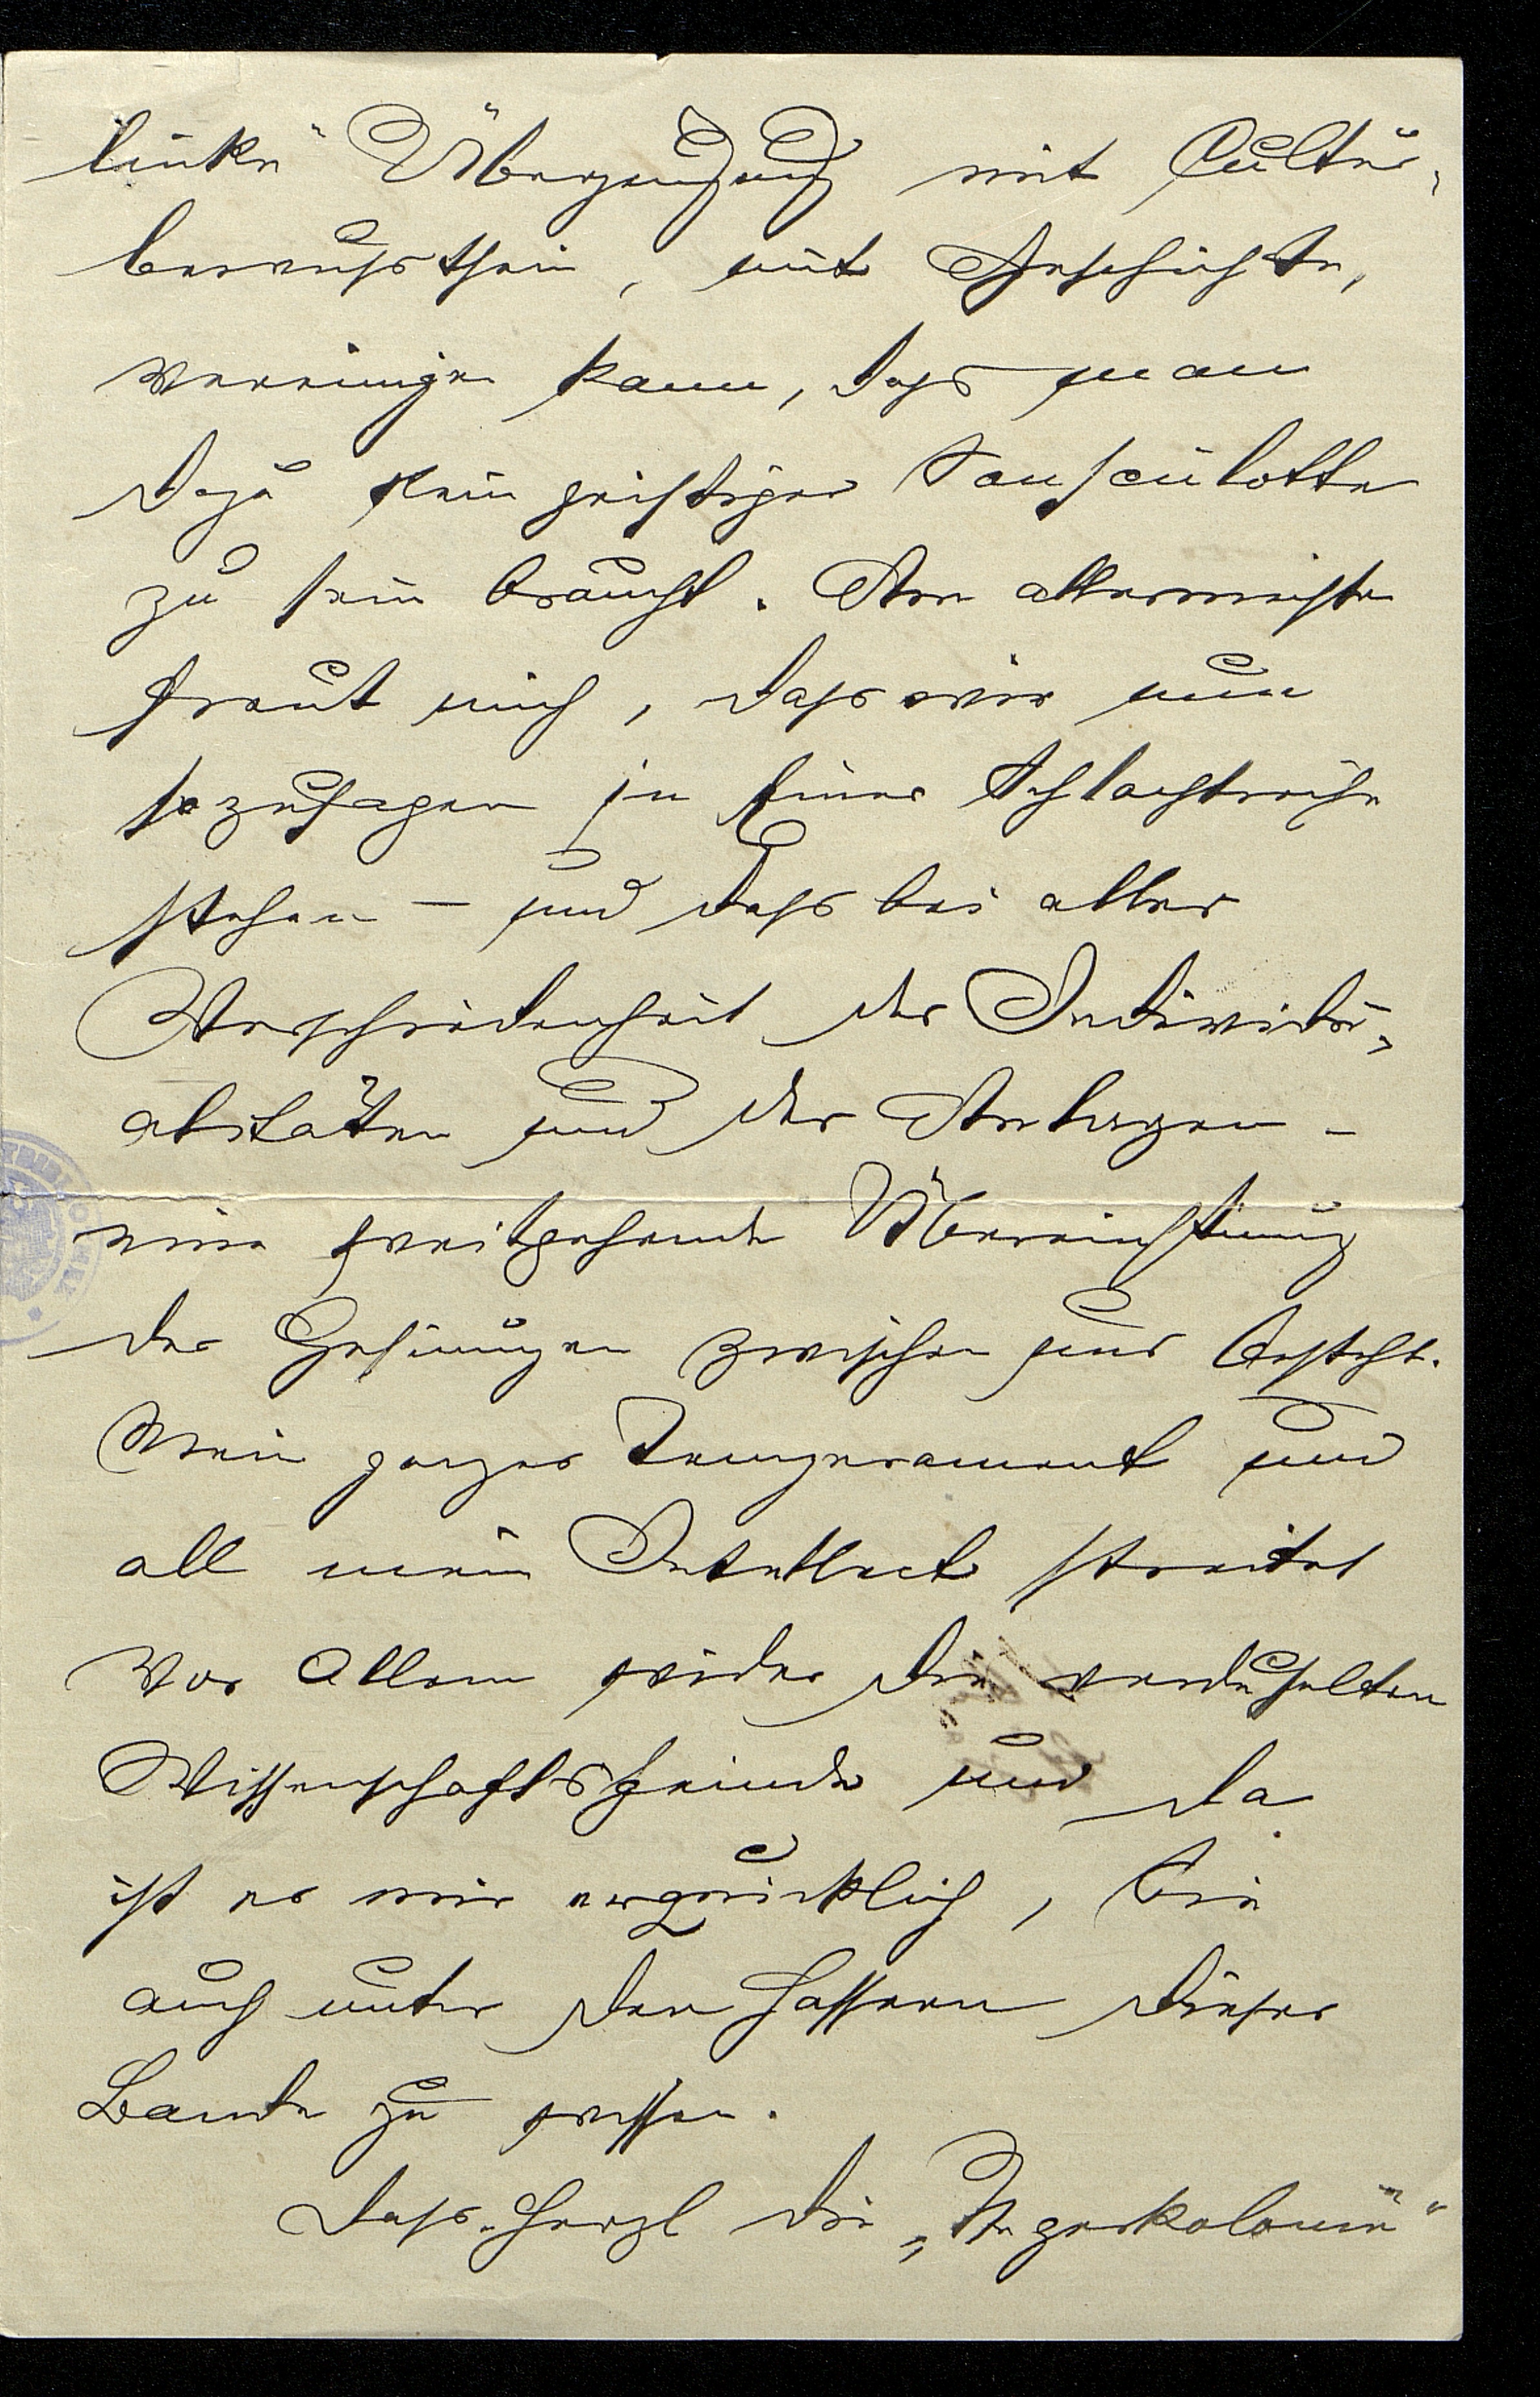 linke" Überzeugung mit Cultur-
bewusstsein, mit Geschichte,
vereinigen kann, dass man
dazu kein geistiger Sansculotte
zu sein braucht. Am allermeisten
freut mich, dass wir nun
sozusagen in einer Schlachtreihe
stehen – und dass bei aller
Verschiedenheit der Individu-
alitäten und der Anlagen –
eine weitgehende Übereinstimung
der Gesinungen zwischen uns besteht.
Mein ganzes Temperament und
all mein Intellect streitet
vor Allem wider die verduselten
Wissenschaftsfeinde und da
ist es mir erquicklich, Sie
auch unter den Hassern dieser
Bande zu wissen.
Dass Herzl die „Negerkolonie"